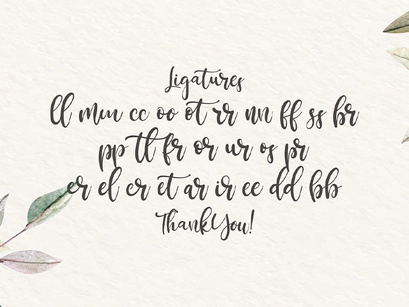 Ligatures
ll mm cc oo ot rr nn ff ss br
pp tl fr or ur os pr
er el cr et ar ir ee dd bb
ThankYou!